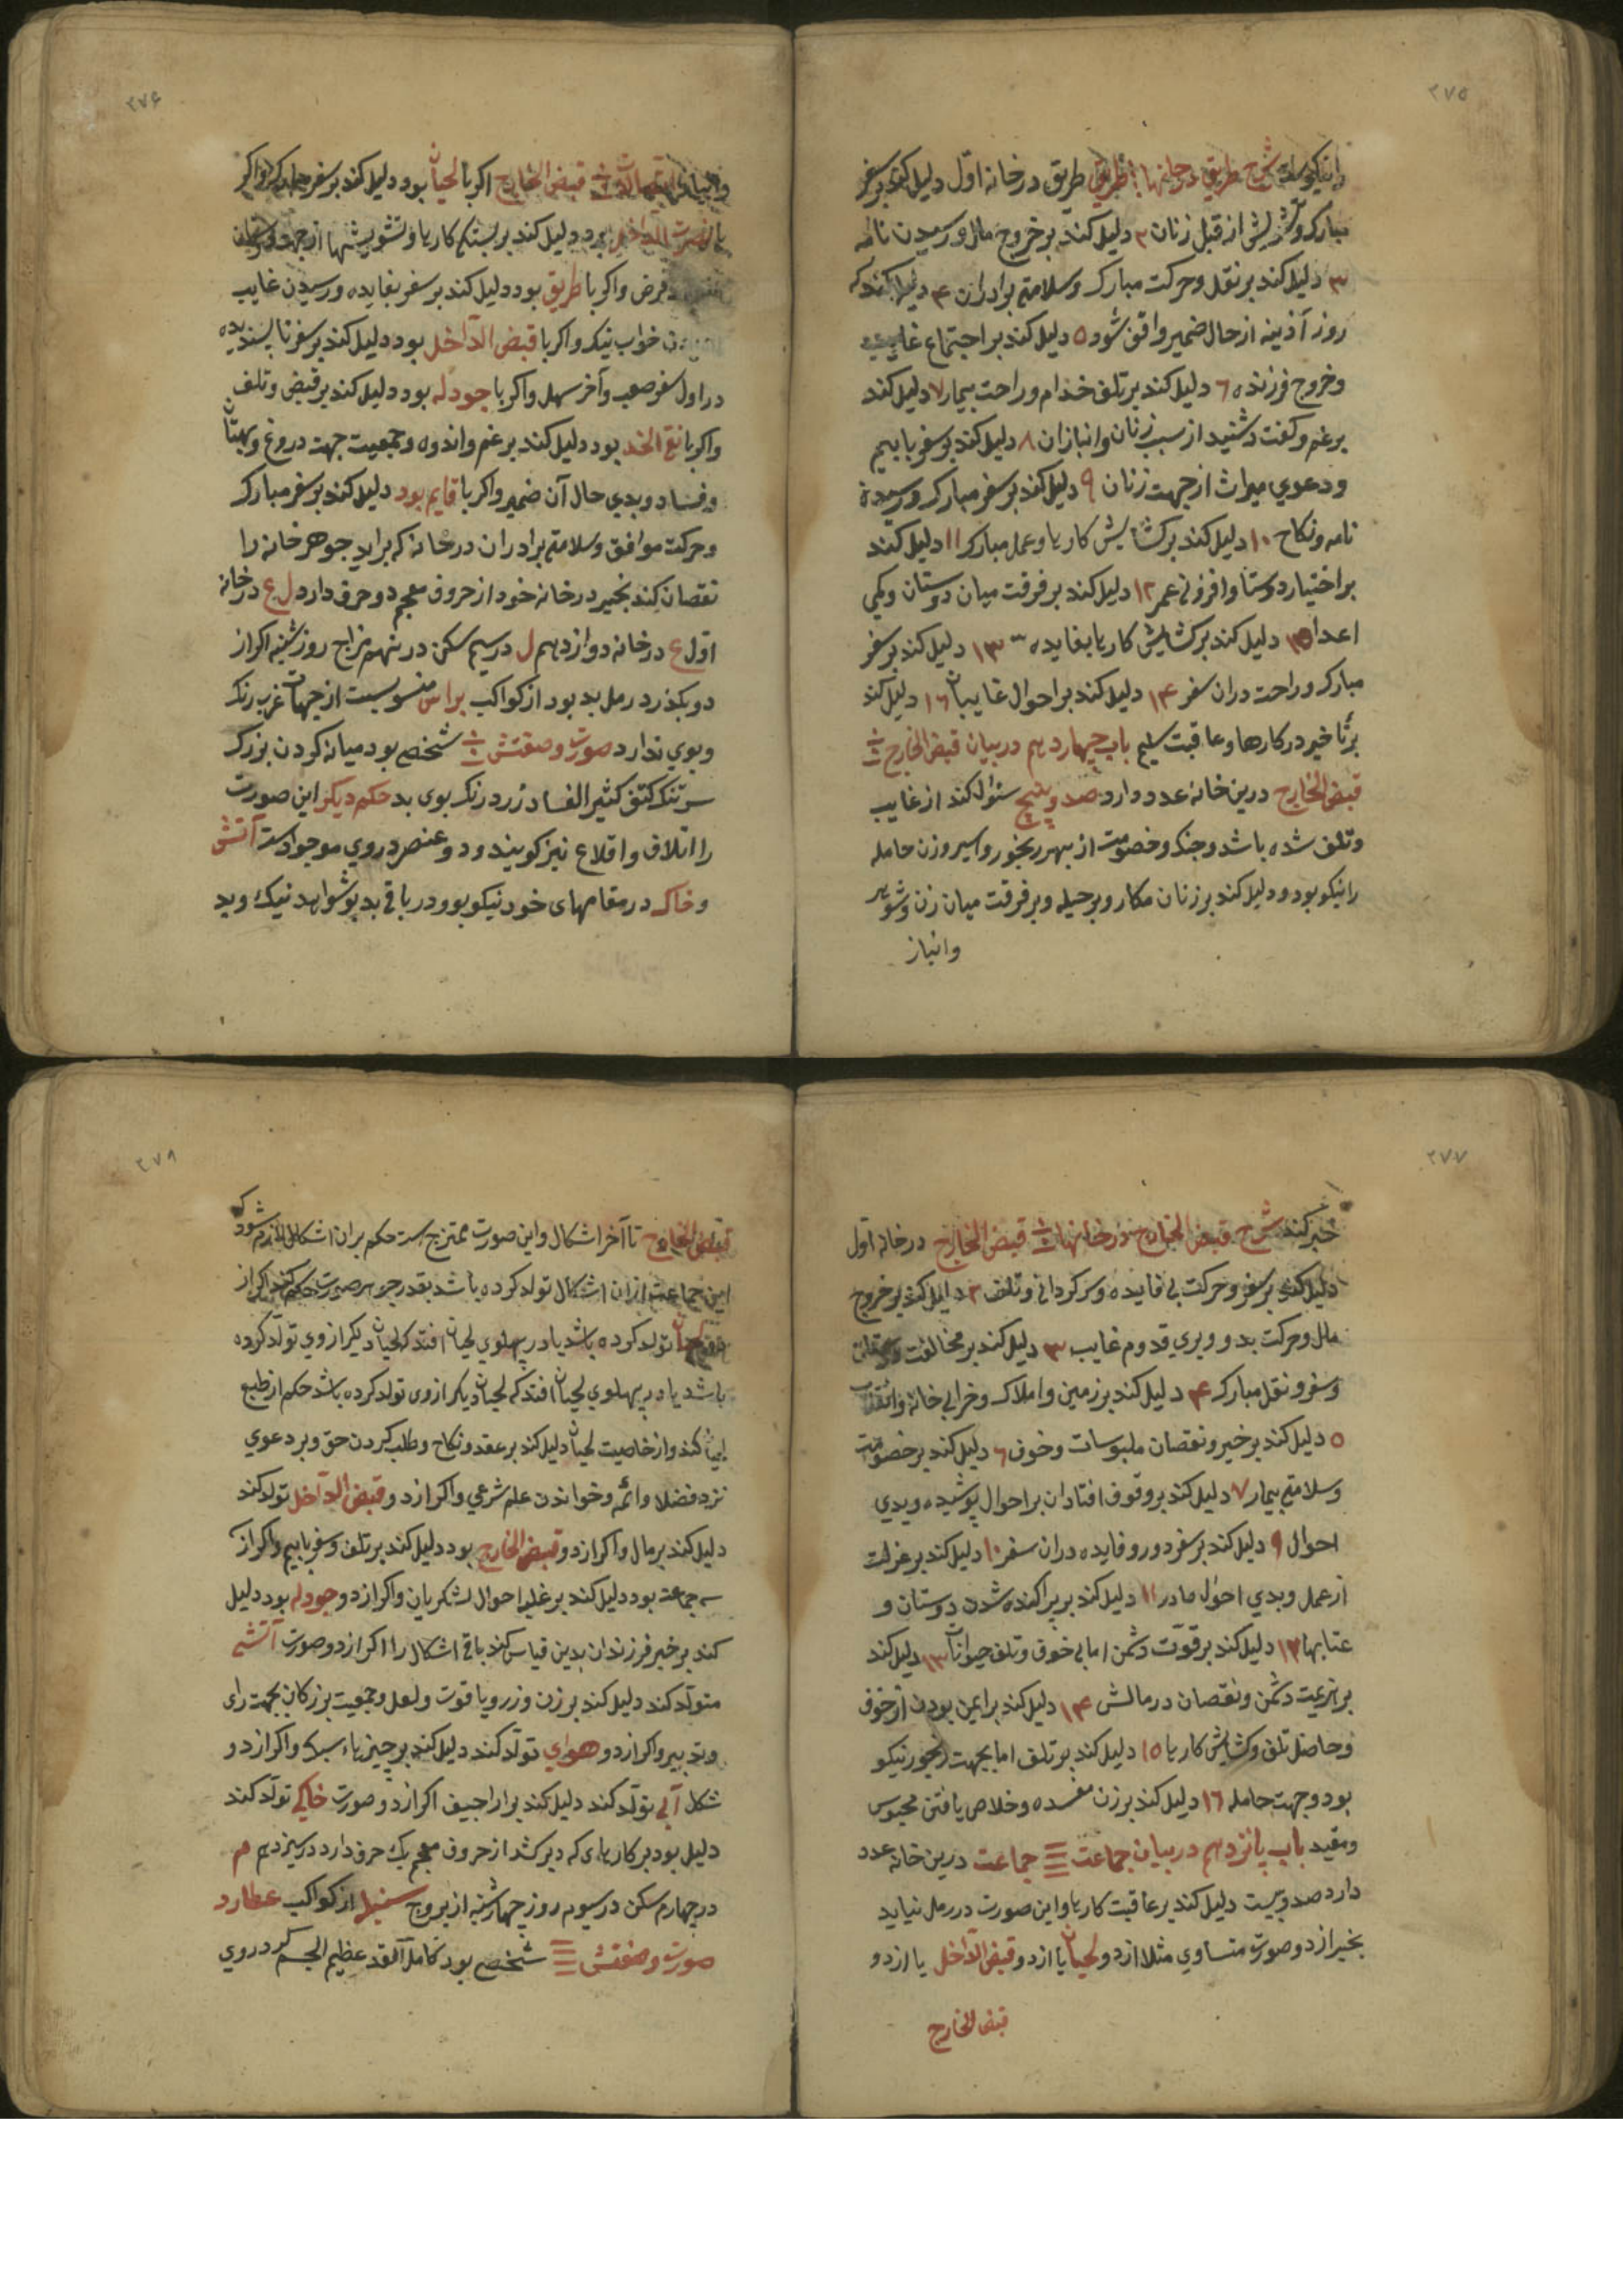 ۲۷۵
شرح طریق در خانها طریق در خانه اول دلیل کند بر سفر
مبارک و تشویش از قبل زنان ۲ دلیل کند بر خروج مال و رسیدن نامه
۳ دلیل کند بر نقل و حرکت مبارک و سلامتی برادران ۴ دلیل کند که
روز آذینه از حال ضمیر واقف شود ۵ دلیل کند بر اجتماع غایب
و خروج فرزند ۶ دلیل کند بر تلف خدام و راحت بیمار ۷ دلیل کند
بر غم و کفت و شنید از سبب زنان و انبازان ۸ دلیل کند بر سفر با بیم
و دعوی میراث از جهت زنان ۹ دلیل کند بر سفر مبارک و رسیدن
نامه و نکاح ۱۰ دلیل کند بر کشایش کارها و عمل مبارک ۱۱ دلیل کند
بر اختیار دوستا و افزونی عمر ۱۲ دلیل کند بر فرقت میان دوستان و کمی
اعدا ۱۵ دلیل کند بر کشایش کارها بفایده ۱۳ دلیل کند بر سفر
مبارک و راحت دران سفر ۱۴ دلیل کند بر احوال غایبان ۱۶ دلیل کند
بر تأخیر در کارها و عاقبت سلیم باب چهاردهم در بیان قبض الخارج
قبض الخارج درین خانه عدد دارد صد و پنج سئوال کند از غایب
و تلف شده باشد و جنک و خصومت از بهر رنجور و اسیر و زن حامله
را نیکو بود و دلیل کند بر زنان مکار و پر حیله و بر فرقت میان زن و شوهر
و انباز
۲۷۶
قبض الخارج اکر با لحیان بود دلیل کند بر سفر مبارک و اکر
با نصرت الداخل بود دلیل کند بر بستکی کارها و تشویشها از جهت
قرض و اکر با طریق بود دلیل کند بر سفر بفایده و رسیدن غایب
خواب نیک و اکر با قبض الداخل بود دلیل کند بر سفر نا پسندیده
در اول سفر صعب و آخر سهل و اکر با جودله بود دلیل کند بر قبض و تلف
و اکر با نقی الخد بود دلیل کند بر غم و اندوه و جمعیت جهت دروغ و بهتان
و فساد و بدی حال آن ضمیر و اکر با قایم بود دلیل کند بر سفر مبارک
و حرکت موافق و سلامتی برادران در خانه که براید جوهر خانه را
نقصان کند بخیر در خانه خود از حروف معجم دو حرف دارد ل ع در خانه
اول ع در خانه دوازدهم ل در سیم سکن در نهم مزاج روز شنبه اکر از
دو بکذرد رمل بد بود از کواکب براس منسوبست از جهات غرب رنک
و بوی ندارد صورت و صفتش شخصی بود میانه کردن بزرک
سر تنک کتف کثیر الفساد زرد رنک بوی بد حکم دیکر این صورت
را اتلاف و اقلاع نیز کویند و دو عنصر در وی موجود است آتش
و خاک در مقامهای خود نیکو بود و در باقی بد بشواهد نیک و بد
۲۷۷
خبر کند شرح قبض الخارج در خانها قبض الخارج در خانه اول
دلیل کند بر سفر و حرکت بی فایده و سرکردانی و تلف ۲ دلیل کند بر خروج
مال و حرکت بد و دیری قدوم غایب ۳ دلیل کند بر مخالفت
و سفر و نقل مبارک ۴ دلیل کند بر زمین و املاک و خرابی خانه و
۵ دلیل کند بر خیر و نقصان ملبوسات و خوف ۶ دلیل کند بر خصومت
و سلامتی بیمار ۷ دلیل کند بر وقوف افتادان بر احوال پوشیده و بدی
احوال ۹ دلیل کند بر سفر دور و فایده دران سفر ۱۰ دلیل کند بر عزلت
از عمل و بدی احوال مادر ۱۱ دلیل کند بر پراکنده شدن دوستان و
عتابها ۱۲ دلیل کند بر قوت دشمن اما بی خوف و تلف حیوانات ۱۳ دلیل کند
بر هزیمت دشمن و نقصان در مالش ۱۴ دلیل کند بر ایمن بودن از خوف
و حاصل تلف و کشایش کارها ۱۵ دلیل کند بر تلف اما بجهت رنجور نیکو
بود و جهت حامله ۱۶ دلیل کند بر زن مفسده و خلاص یافتن محبوس
و مقید باب پانزدهم در بیان جماعت جماعت درین خانه عدد
دارد صد و بیست دلیل کند بر عاقبت کارها و این صورت در رمل نیاید
بخیر از دو صورت متساوی مثلا از دو لحیان یا از دو قبض الداخل یا از دو
قبض الخارج
۲۷۸
قبض الخارج تا آخر اشکال و این صورت ممتزج است حکم بران اشکال لازم شود که
این جماعت ازان اشکال تولد کرده باشد بقدر جوهر صورت حکم کند اکر از
لحیان تولد کرده باشد یا در پهلوی لحیان افتد که لحیان دیکر از وی تولد کرده
باشد یا در پهلوی لحیان افتد که لحیان دیکر از وی تولد کرده باشد حکم از طبع
لحیان کند و از خاصیت لحیان دلیل کند بر عقد و نکاح و طلب کردن حق و بر دعوی
نزد فضلا و ائمه و خواندن علم شرعی و اکر از دو قبض الداخل تولد کند
دلیل کند بر مال و اکر از دو قبض الخارج بود دلیل کند بر تلف و سفر با بیم و اکر از
سه جماعت بود دلیل کند بر غلبه احوال لشکریان و اکر از دو جودله بود دلیل
کند بر خیر فرزندان بدین قیاس کند باقی اشکال را اکر از دو صورت آتشی
متولد کند دلیل کند بر زن و زر و یاقوت و لعل و جمعیت بزرکان بجهت رای
و تدبیر و اکر از دو هوای تولد کند دلیل کند بر چیزهاء سبک و اکر از دو
شکل آبی تولد کند دلیل کند بر اراجیف اکر از دو صورت خاکی تولد کند
دلیل بود بر کارهای که دیر کشد از حروف معجم یک حرف دارد در سیزدهم م
در چهارم سکن در سیوم روز چهارشنبه از بروج سنبله از کواکب عطارد
صورت و صفتش شخصی بود کامل القد عظیم الجسم کرد روی